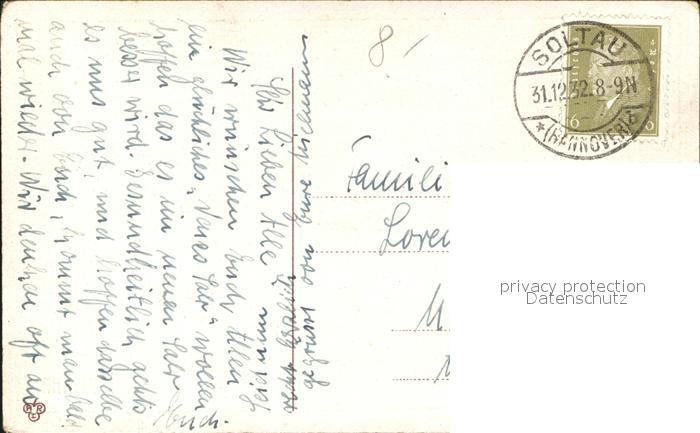 Ihr Lieben Alle!
Wir wünschen Euch Allen
ein glückliches „Neues Jahr“ wollen
hoffen das es im neuen Jahr
besser wird. Gesundheitlich gehts
es uns gut, und hoffen dasselbe
auch von Euch, kommt man bald
mal wieder. Wir denken oft an
Euch.
8.-
SOLTAU
31.12.32.8-9N
* (HANNOVER)
6
6
Famili
Loren
privacy protection
Datenschutz